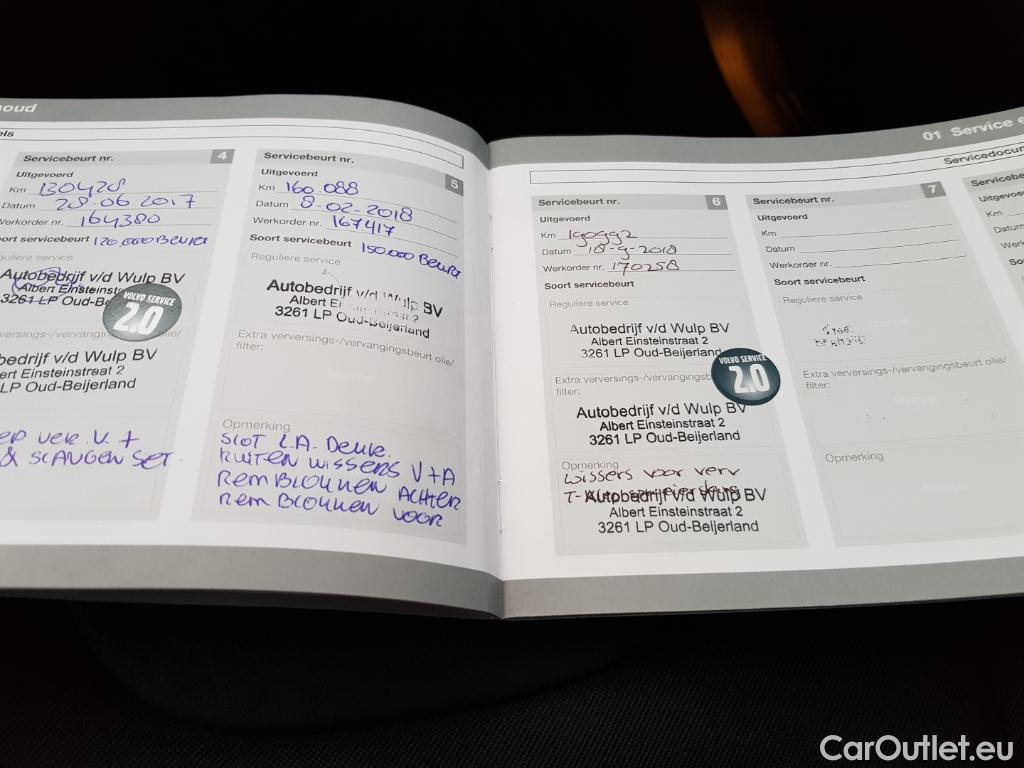 houd
els
Servicebeurt nr. 4
Uitgevoerd
Km 130428
Datum 28-06-2017
Werkorder nr. 164380
oort servicebeurt 120.000 Beurt
Reguliere service
Autobedrijf v/d Wulp BV
Albert Einsteinstr
3261 LP Oud-Be
VOLVO SERVICE
2.0
erversings-/vervanging olie/
bedrijf v/d Wulp BV
ert Einsteinstraat 2
LP Oud-Beijerland
ver. V. +
& SLANGEN SET.
Servicebeurt nr. 5
Uitgevoerd
Km 160.088
Datum 8-02-2018
Werkorder nr. 167417
Soort servicebeurt 150.000 Beurt
Reguliere service
Autobedrijf v/d Wulp BV
Albert Einsteinstraat 2
3261 LP Oud-Beijerland
Extra verversings-/vervangingsbeurt olie/
filter:
Stempel
Opmerking
SLOT L.A. Deur.
RUITEN WISSERS V+A
REMBLOKKEN ACHTER
REMBLOKKEN VOOR
01 Service e
Servicedocum
Servicebeurt nr. 6
Uitgevoerd
Km 190992
Datum 18-9-2018
Werkorder nr. 170258
Soort servicebeurt
Reguliere service
Autobedrijf v/d Wulp BV
Albert Einsteinstraat 2
3261 LP Oud-Beijerland
VOLVO SERVICE
2.0
Extra verversings-/vervangingsb
filter:
Autobedrijf v/d Wulp BV
Albert Einsteinstraat 2
3261 LP Oud-Beijerland
Opmerking
wissers voor verv
Autobedrijf v/d Wulp BV
Albert Einsteinstraat 2
3261 LP Oud-Beijerland
Servicebeurt nr. 7
Uitgevoerd
Km
Datum
Werkorder nr.
Soort servicebeurt
Reguliere service
Stempel
Extra verversings-/vervangingsbeurt olie/
filter:
Stempel
Opmerking
Stempel
Servicebe
Uitgevoe
Km
Datum
Werko
Soort
Reg
Ext
filt
CarOutlet.eu